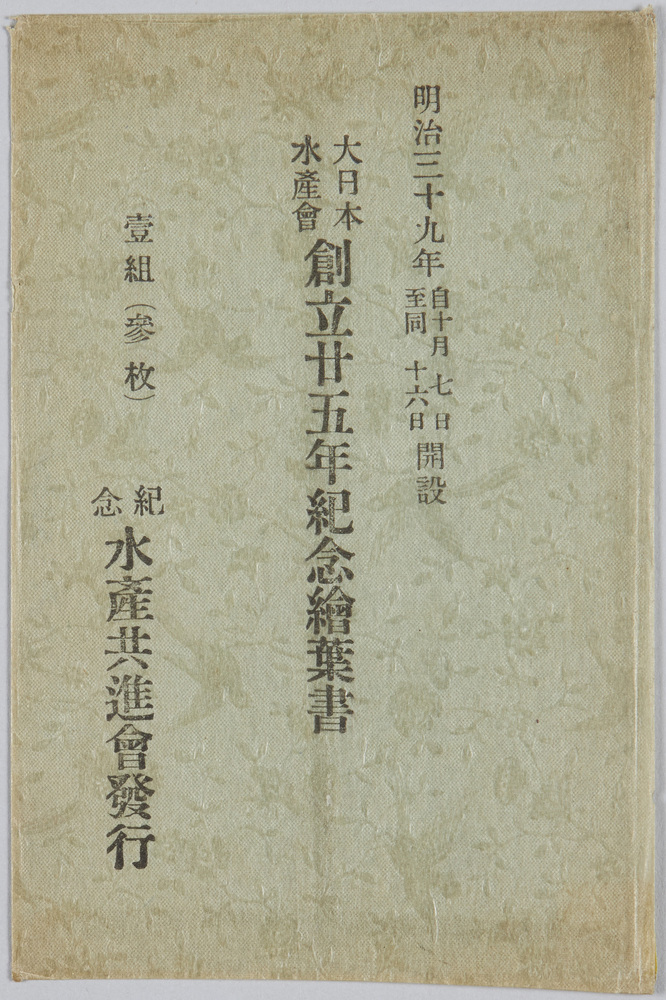 明治三十九年自十月七日至同十六日開設
大日本水產會創立廿五年紀念繪葉書
壹組（參枚）
紀念水產共進會發行